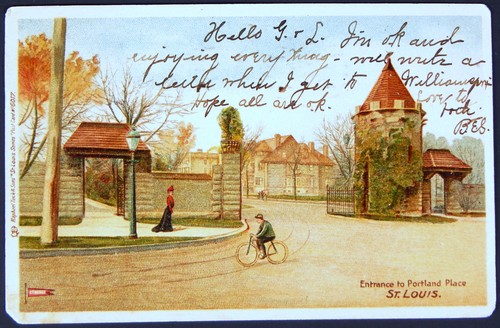 Hello G. & L. I'm ok and
enjoying everything - will write a
letter when I get to Williamson
hope all are ok. Love to
both
BES.
Entrance to Portland Place
ST. LOUIS.